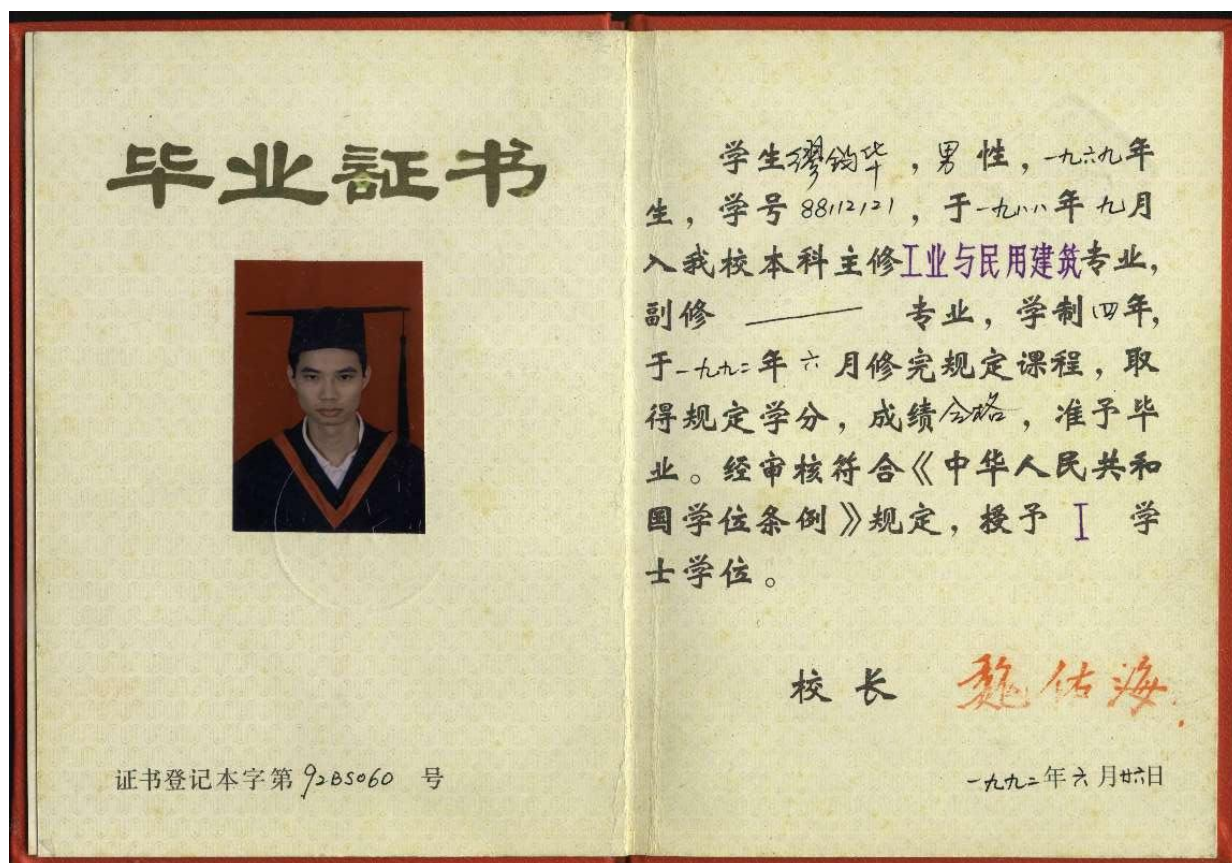 毕业証书
证书登记本字第92BS060号
学生缪钧华,男性,一九六九年
生,学号88112121,于一九八八年九月
入我校本科主修工业与民用建筑专业,
副修 —— 专业,学制四年,
于一九九二年六月修完规定课程,取
得规定学分,成绩合格,准予毕
业。经审核符合《中华人民共和
国学位条例》规定,授予 工 学
士学位。
校长 魏佑海
一九九二年六月廿六日